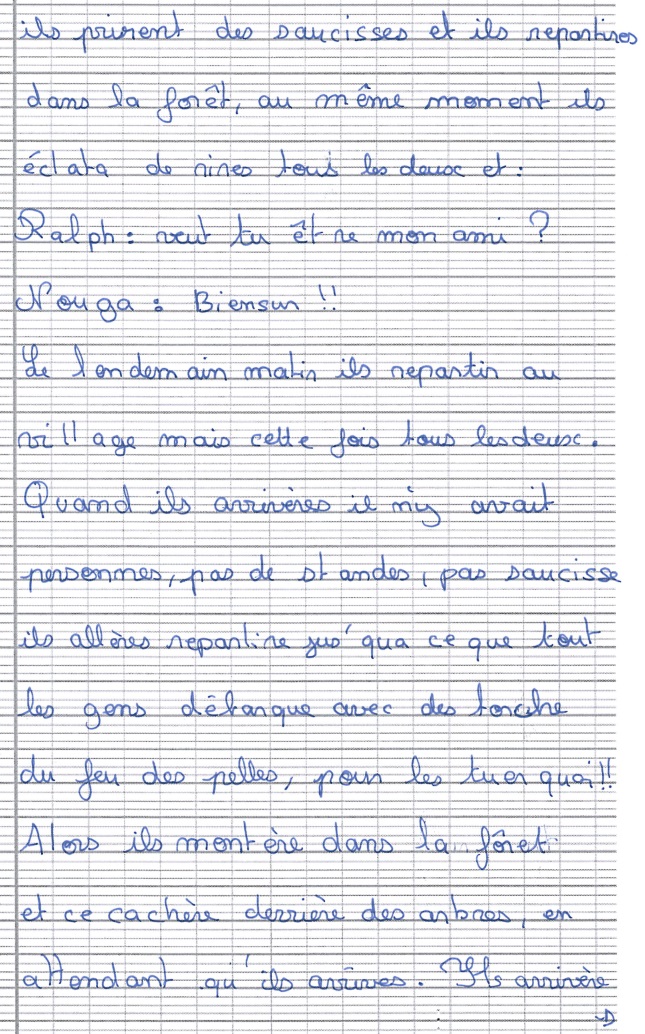 ils prirent des saucisses et ils repartires
dans la forêt, au même moment ils
éclata de rires tous les deux et :
Ralph : veut tu être mon ami ?
Nouga : Biensur !!
Le lendemain matin ils repartir au
village mais cette fois tous les deux.
Quand ils arrivères il n'y avait
personnes, pas de standes, pas saucisse
ils allères repartire jus'qua ce que tout
les gens débarque avec des torche
du feu des pelles, pour les tuer quoi!!
Alors ils montère dans la fôret
et ce cachère derrière des arbres, en
attendant qu'ils arrives. Ils arrivère